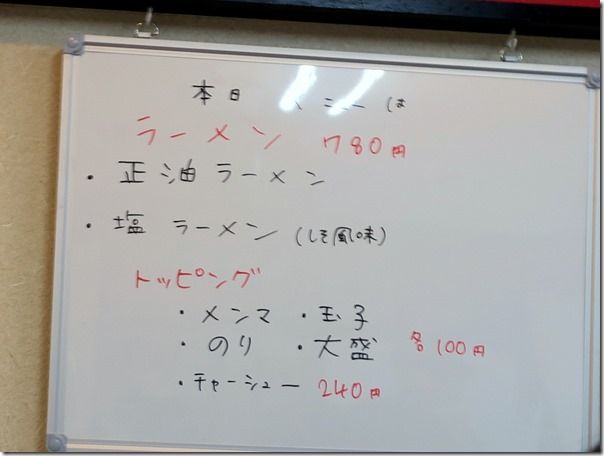 本日 メニューは
ラーメン 780円
・正油ラーメン
・塩ラーメン (しそ風味)
トッピング
・メンマ ・玉子
・のり ・大盛 各100円
・チャーシュー 240円